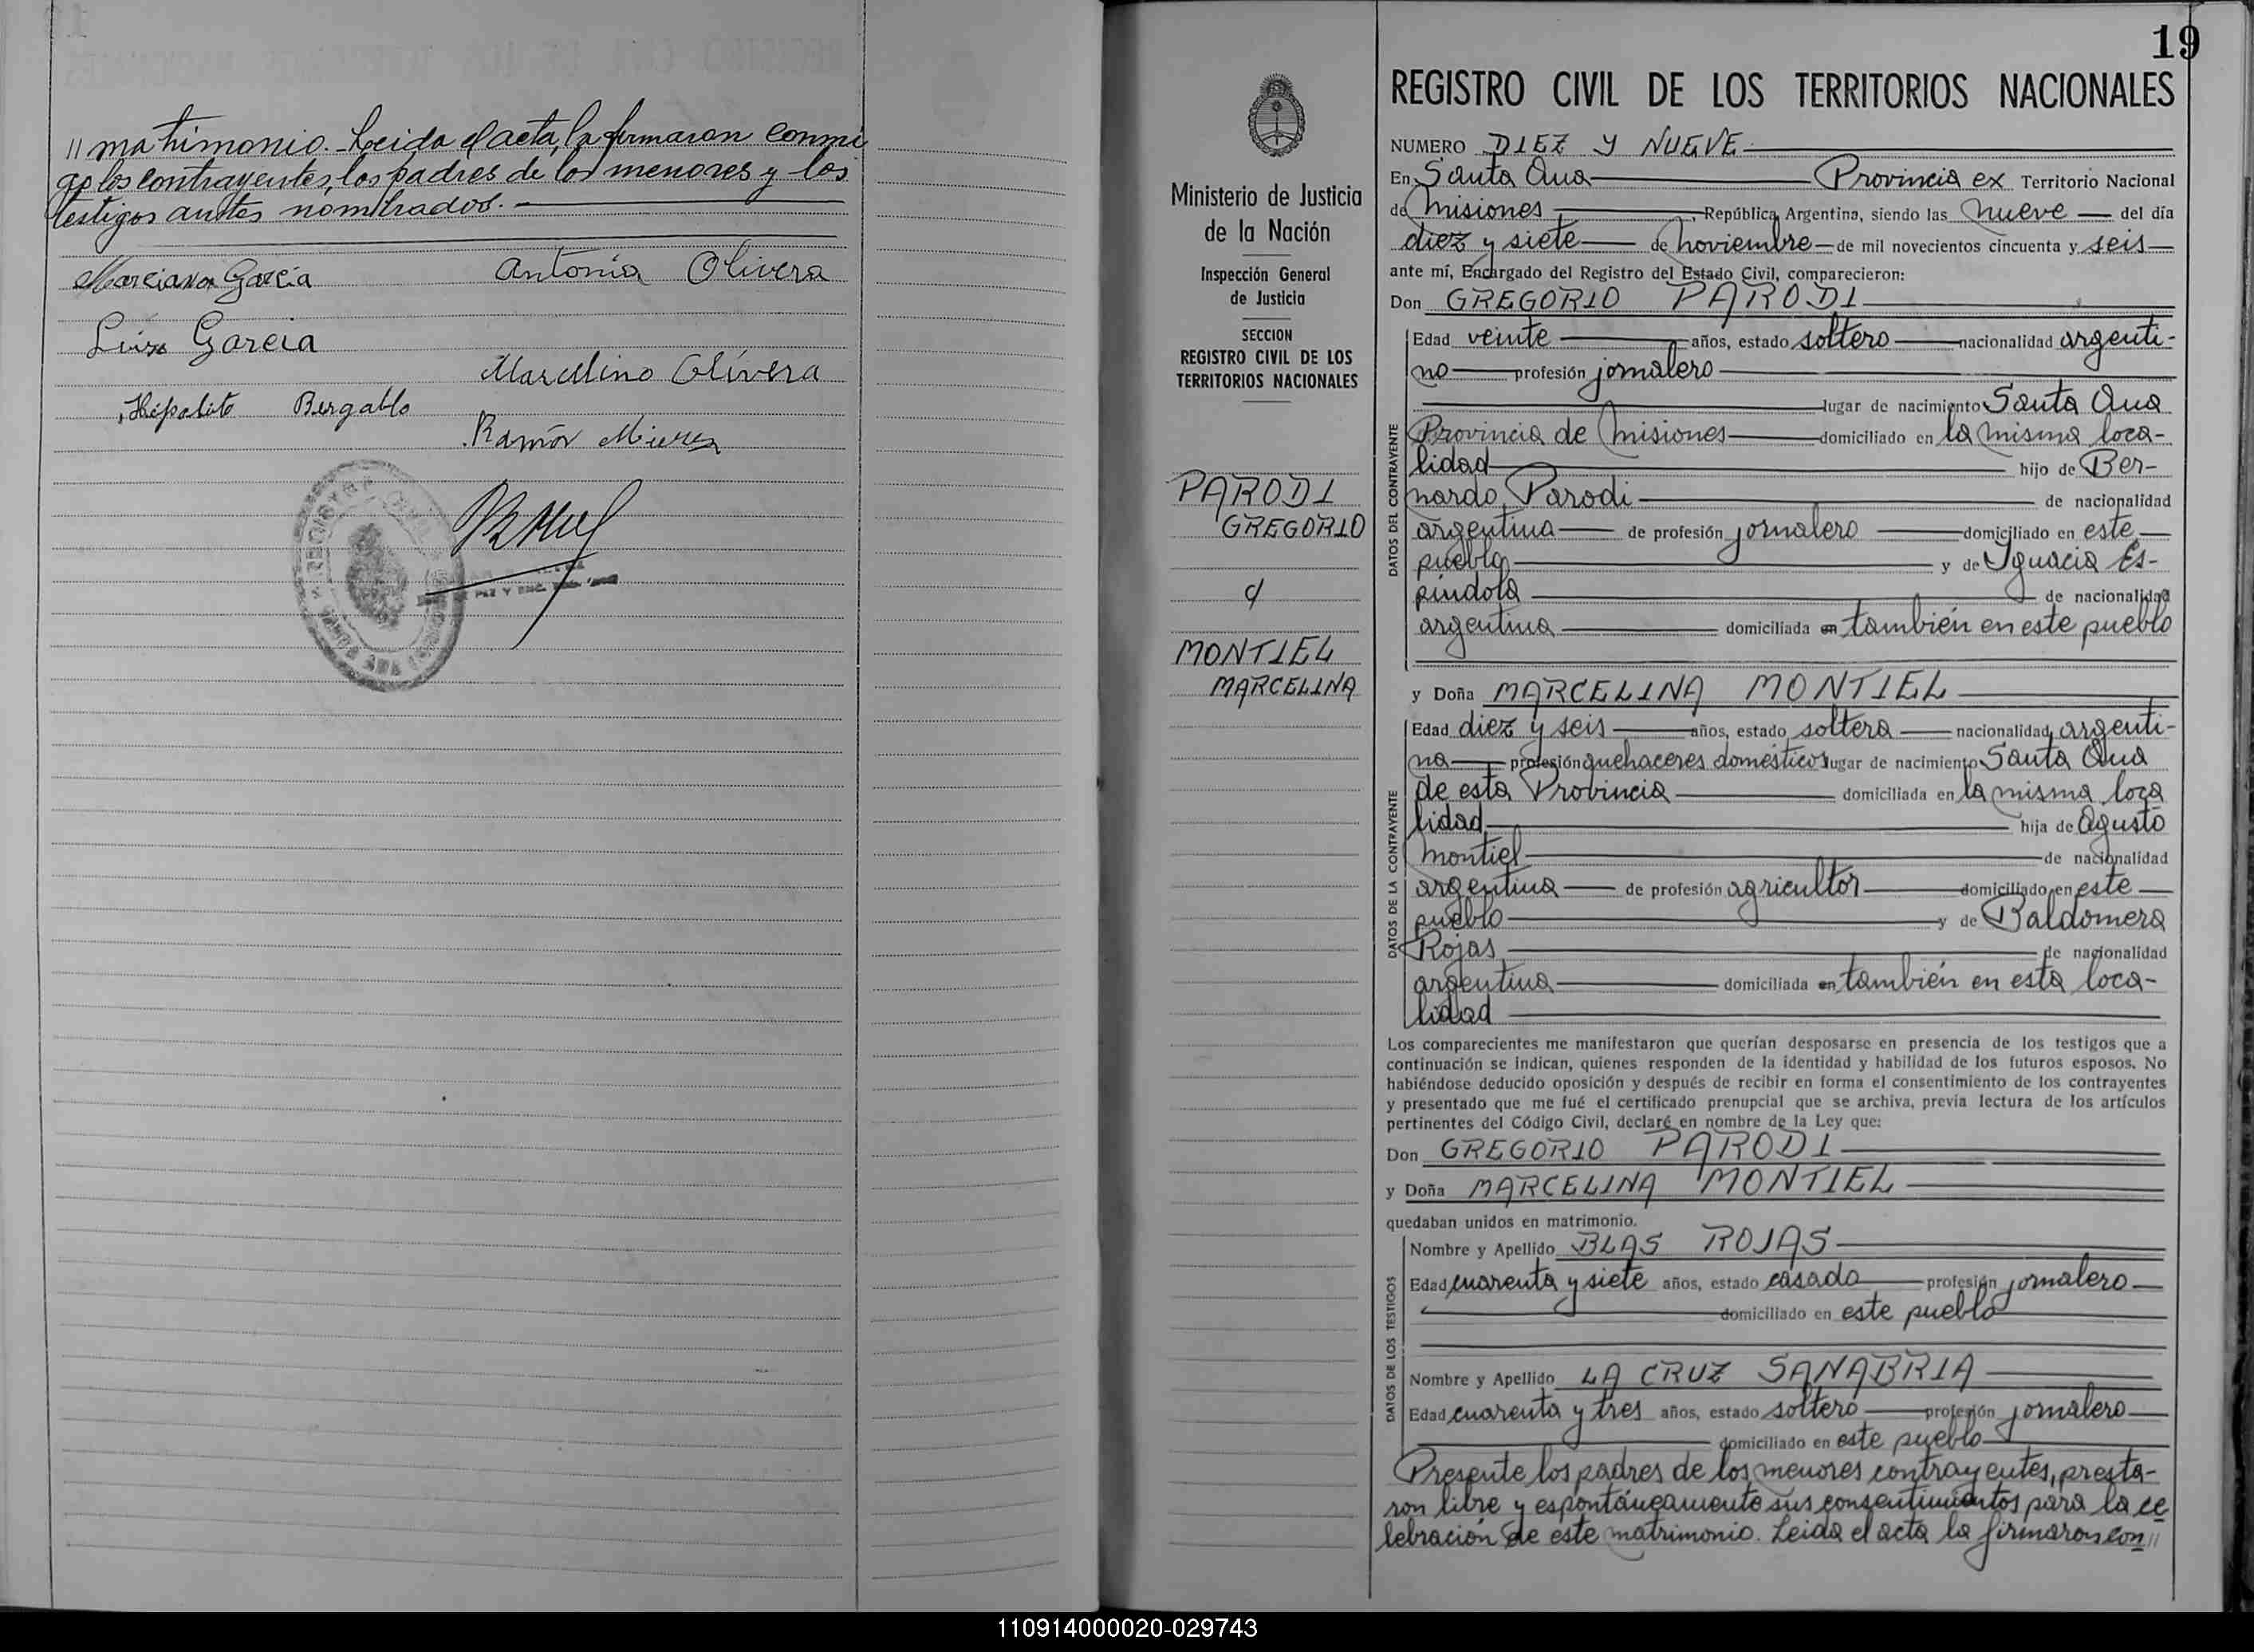 // matrimonio. - Leida el acta, la firmaron conmi
go los contrayentes, los padres de los menores y los
testigos antes nombrados. —
Marciano Garcia Antonia Olivera
Luisa Garcia
Marcelino Olivera
Hipolito Bergallo
Ramón
19
REGISTRO CIVIL DE LOS TERRITORIOS NACIONALES
Ministerio de Justicia
de la Nación
Inspección General
de Justicia
SECCION
REGISTRO CIVIL DE LOS
TERRITORIOS NACIONALES
PARODI
GREGORIO
c/
MONTIEL
MARCELINA
NUMERO DIEZ Y NUEVE
En Santa Ana Provincia ex Territorio Nacional
de Misiones, República Argentina, siendo las nueve del día
diez y siete de noviembre de mil novecientos cincuenta y seis
ante mí, Encargado del Registro del Estado Civil, comparecieron:
Don GREGORIO PARODI
DATOS DEL CONTRAYENTE
Edad veinte años, estado soltero nacionalidad argenti-
no profesión jornalero
lugar de nacimiento Santa Ana
Provincia de Misiones domiciliado en la misma loca-
lidad hijo de Ber-
nardo Parodi de nacionalidad
argentina de profesión jornalero domiciliado en este
pueblo y de Ignacia Es-
píndola de nacionalidad
argentina domiciliada en también en este pueblo
y Doña MARCELINA MONTIEL
DATOS DE LA CONTRAYENTE
Edad diez y seis años, estado soltera nacionalidad argenti-
na profesión quehaceres domésticos lugar de nacimiento Santa Ana
de esta Provincia domiciliada en la misma loca
lidad hija de Agusto
Montiel de nacionalidad
argentina de profesión agricultor domiciliado en este
pueblo y de Baldomera
Rojas de nacionalidad
argentina domiciliada en también en esta loca-
lidad
Los comparecientes me manifestaron que querían desposarse en presencia de los testigos que a
continuación se indican, quienes responden de la identidad y habilidad de los futuros esposos. No
habiéndose deducido oposición y después de recibir en forma el consentimiento de los contrayentes
y presentado que me fué el certificado prenupcial que se archiva, previa lectura de los artículos
pertinentes del Código Civil, declaré en nombre de la Ley que:
Don GREGORIO PARODI
y Doña MARCELINA MONTIEL
quedaban unidos en matrimonio.
DATOS DE LOS TESTIGOS
Nombre y Apellido BLAS ROJAS
Edad cuarenta y siete años, estado casado profesión jornalero
domiciliado en este pueblo
Nombre y Apellido LA CRUZ SANABRIA
Edad cuarenta y tres años, estado soltero profesión jornalero
domiciliado en este pueblo
Presente los padres de los menores contrayentes, presta-
ron libre y espontáneamente sus consentimientos para la ce
lebración de este matrimonio. Leida el acta la firmaron con //
110914000020-029743